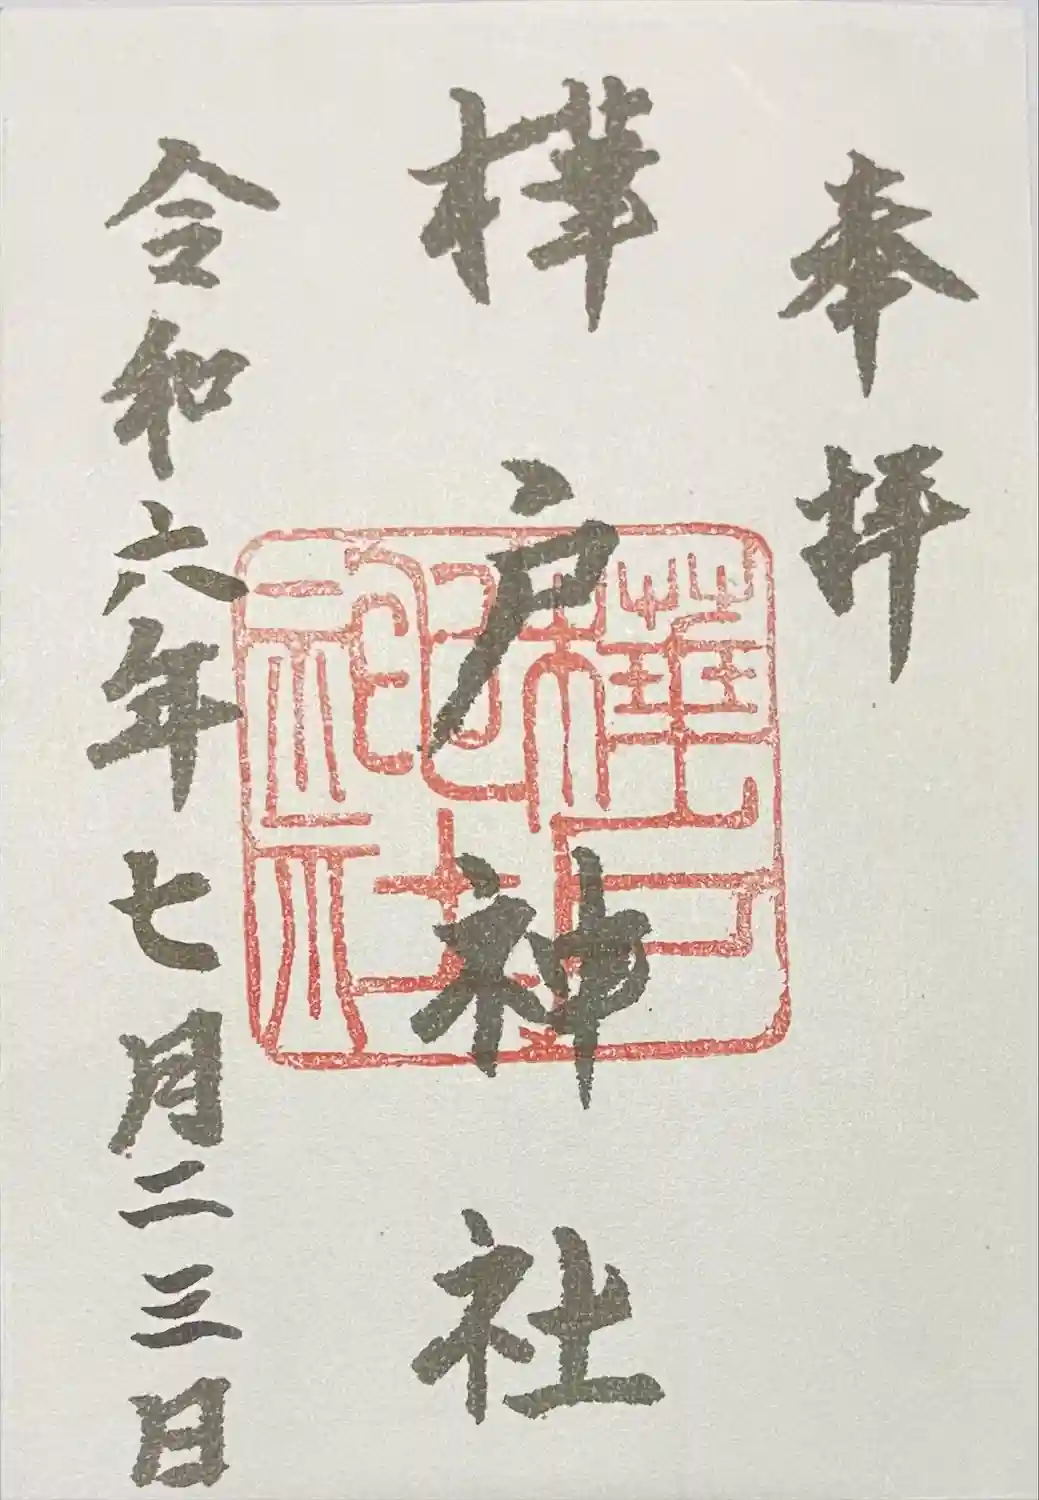 奉拝
樺戸神社
令和六年七月二三日
樺戸神社